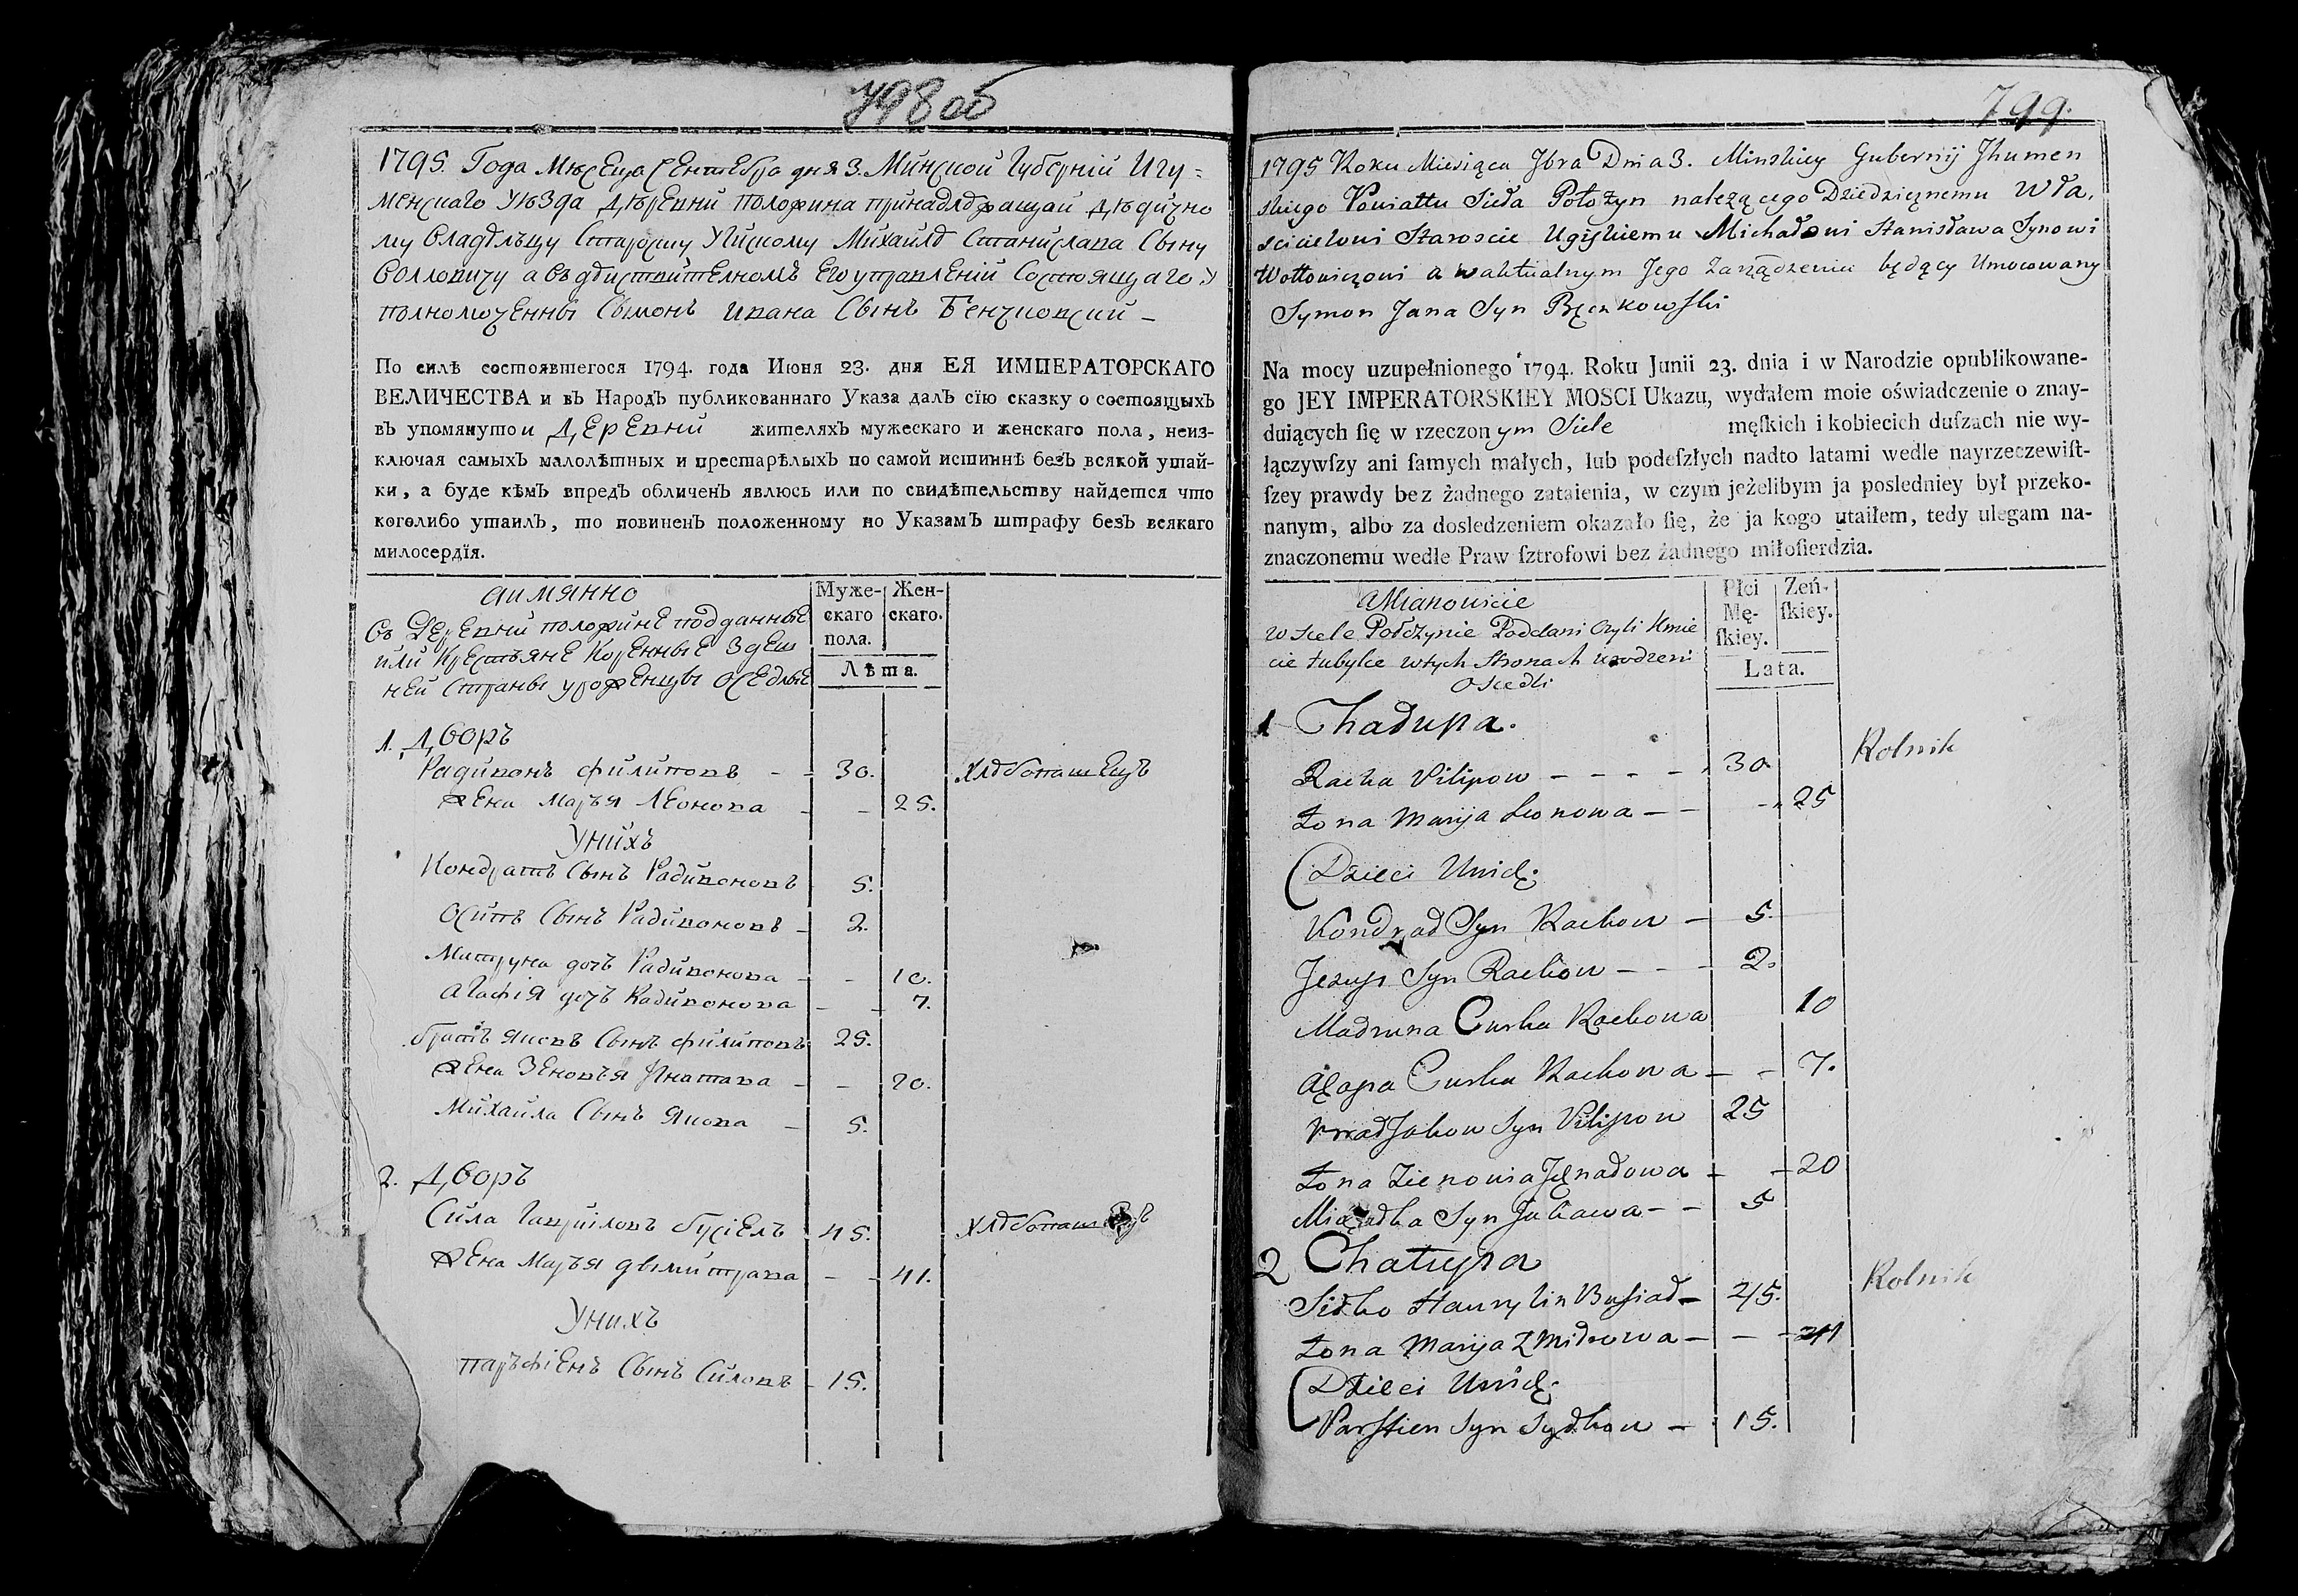 798 об
1795. Года Мѣсеца Сентебра дня 3. Минской Губерній Игу=
менскаго Уѣзда Деревни Положина принадлежащаи дедично
му Владелцу Старосту Уйскому Михаилѣ Станислава Сыну
Воллович у а въ действителномъ Его управленій Состоящаго У
полномоченны Сымонъ Ивана Сынъ Бенчковский —
По силѣ состоявшегося 1794. года Июня 23. дня ЕЯ ИМПЕРАТОРСКАГО
ВЕЛИЧЕСТВА и въ Народъ публикованнаго Указа далъ сїю сказку о состоящыхъ
въ упомянутои Деревни жителяхъ мужескаго и женскаго пола, неиз-
ключая самыхъ малолѣтныхъ и престарѣлыхъ по самой истиннѣ безъ всякой утай-
ки, а буде кѣмъ впредъ обличенъ явлюсь или по свидѣтельству найдется что
коголибо утаилъ, то повиненъ положенному по Указамъ штрафу безъ всякаго
милосердїя.
аимянно
Въ Деревни положине подданные
или Крестьяне Коренные Здеш
ней Страны уроженцы Оседлые
Муже-
скаго
пола.
Жен-
скаго.
Лѣта.
1. Дворъ
Радивонъ филиповъ - - 30. хлебопашецъ
жена Марья Леонова - - 25.
Унихъ
Кондратъ Сынъ Радивоновъ 5.
Осипъ Сынъ Радивоновъ - 2.
Матруна дочъ Радивонова - - 10.
Агафія дочъ Радивонова - - 7.
братъ Яковъ Сынъ филиповъ 25.
жена Зеновья Игнатава - - 20.
Михаила Сынъ Якова - 5.
2. Дворъ
Сила Гаврилов бусіелъ 45. хлебопашецъ
жена Марья дымитрава - - 41.
Унихъ
парфіенъ Сынъ Силовъ - 15.
799.
1795 Roku Miesiąca 7bra Dnia 3. Minskiey Gubernij Jhumen
skiego Powiattu Sieła Połozyn nalezącego Dziedzicznemu Wła,
scicielowi Staroscie Ugiskiemu Michałowi Stanisława Synowi
Wołłowiczowi a w aktualnym Jego Zarządzeniu będący Umocowany
Symon Jana Syn Bęczkowski
Na mocy uzupełnionego 1794. Roku Junii 23. dnia i w Narodzie opublikowane-
go JEY IMPERATORSKIEY MOSCI Ukazu, wydałem moie oświadczenie o znay-
duiących ſię w rzeczonym Siele męſkich i kobiecich duſzach nie wy-
łączywſzy ani ſamych małych, lub podeſzłych nadto latami wedle nayrzeczewiſt-
ſzey prawdy bez żadnego zataienia, w czym jeżelibym ja posledniey był przeko-
nanym, albo za dosledzeniem okazało ſię, że ja kogo utaiłem, tedy ulegam na-
znaczonemu wedle Praw ſztrofowi bez żadnego miłoſierdzia.
Mianowicie
w Siele Połozynie Poddani Czyli Kmie
cie tubylce wtych Stronach urodzeni
Osiedli
Płci
Mę-
ſkiey.
Zeń-
ſkiey.
Lata.
1 Chałupa.
Racka Pilipow - - - - 30. Rolnik
Zona Maryja Leonowa - - - 25
Dzieci Unich:
Kondrad Syn Rackow - 5.
Jezup Syn Rackow - - - 2.
Madruna Curka Rackowa 10
Agapa Curka Rackowa - - 7.
Brat Jakow Syn Pilipow 25
Zona Zienowia Jgnadowa - - 20
Michałka Syn Jakawa - - 5
2 Chałupa
Siłko Hawrylin Busiał - 45. Rolnik
Zona Maryja Zmidrowa - - - 41
Dzieci Unich:
Parfien Syn Sydkow - 15.